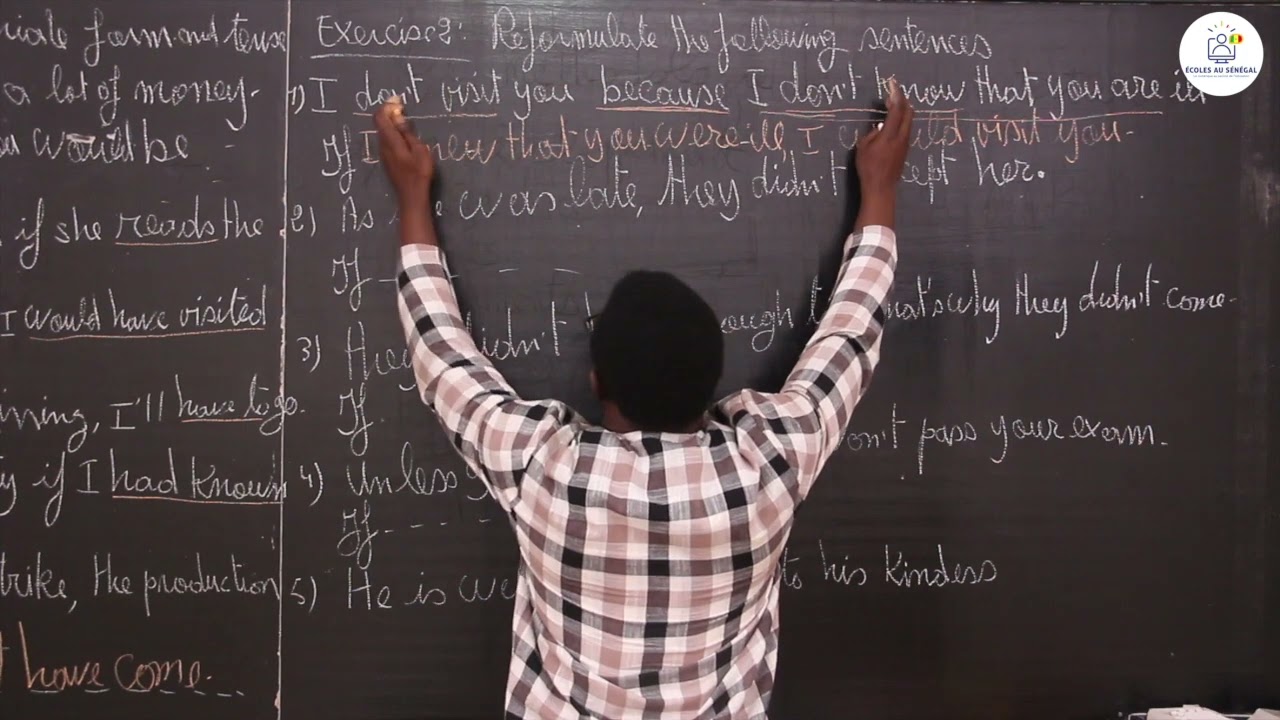 riate form and tense
a lot of money.
would be
if she reads the
I would have visited
I'll have to go.
if I had known
strike, the production
have come.
Exercise2: Reformulate the following sentences
1) I don't visit you because I don't know that you are ill
If I knew that you were ill, I would visit you.
2) As was late, they didn't her.
If
3) They didn't that's why they didn't come.
If
4) Unless won't pass your exam.
If
5) He is to his kindess
ÉCOLES AU SÉNÉGAL